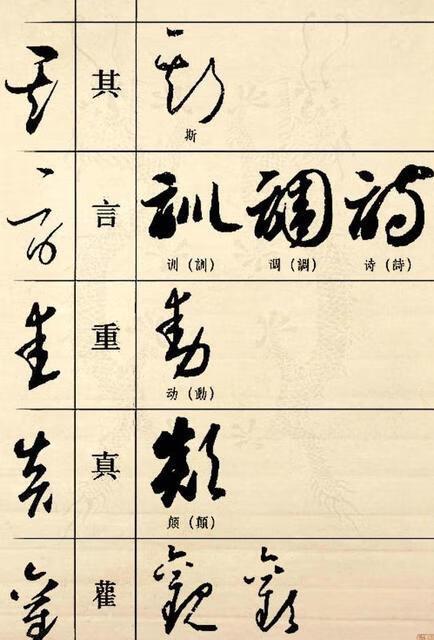 其 斯
言 训（訓） 调（調） 诗（詩）
重 动（動）
真 颠（顛）
雚